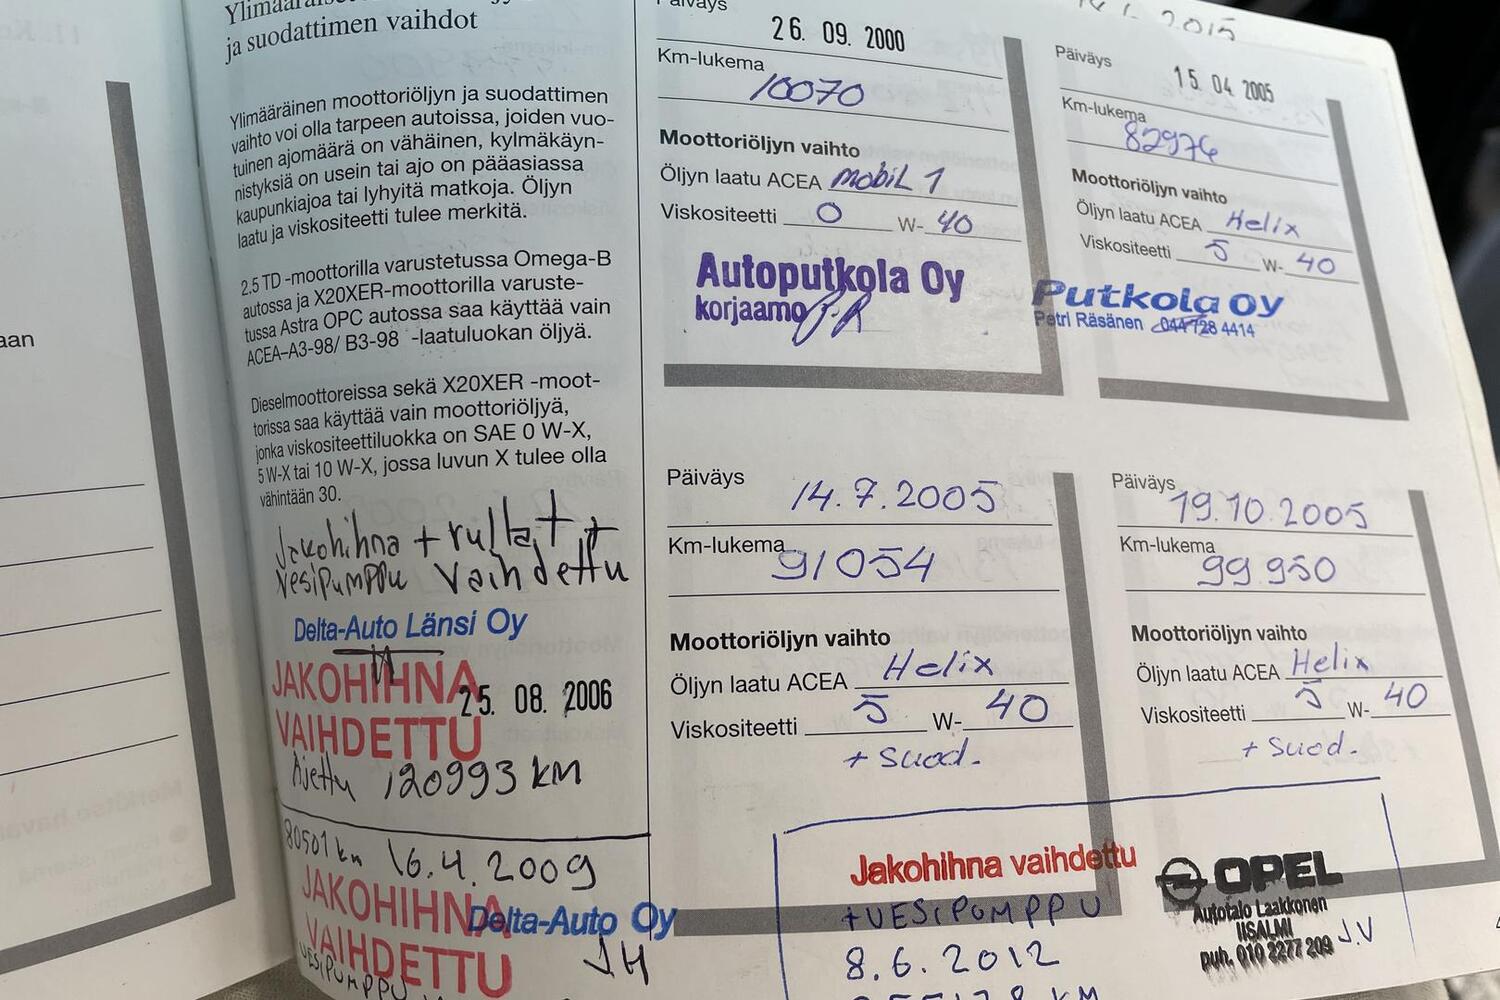 ja suodattimen vaihdot
Ylimääräinen moottoriöljyn ja suodattimen
vaihto voi olla tarpeen autoissa, joiden vuo-
tuinen ajomäärä on vähäinen, kylmäkäyn-
nistyksiä on usein tai ajo on pääasiassa
kaupunkiajoa tai lyhyitä matkoja. Öljyn
laatu ja viskositeetti tulee merkitä.
2.5 TD -moottorilla varustetussa Omega-B
autossa ja X20XER-moottorilla varuste-
tussa Astra OPC autossa saa käyttää vain
ACEA–A3-98/ B3-98 -laatuluokan öljyä.
Dieselmoottoreissa sekä X20XER -moot-
torissa saa käyttää vain moottoriöljyä,
jonka viskositeettiluokka on SAE 0 W-X,
5 W-X tai 10 W-X, jossa luvun X tulee olla
vähintään 30.
Jakohihna + rullat +
vesipumppu vaihdettu
Delta-Auto Länsi Oy
JAKOHIHNA
VAIHDETTU
25. 08. 2006
Ajettu 120993 km
80501 km 16.4.2009
JAKOHIHNA
VAIHDETTU
Delta-Auto Oy
JH
VESIPUMPPU
Päiväys
26. 09. 2000
Km-lukema
10070
Moottoriöljyn vaihto
Öljyn laatu ACEA mobil 1
Viskositeetti 0 W- 40
Autoputkola Oy
korjaamo
2015
Päiväys
15 04. 2005
Km-lukema
82976
Moottoriöljyn vaihto
Öljyn laatu ACEA Helix
Viskositeetti 5 W- 40
Putkola oy
Petri Räsänen 044 728 4414
Päiväys 14.7.2005
Km-lukema
91054
Moottoriöljyn vaihto
Öljyn laatu ACEA Helix
Viskositeetti 5 W- 40
+ suod.
Päiväys 19.10.2005
Km-lukema
99 950
Moottoriöljyn vaihto
Öljyn laatu ACEA Helix
Viskositeetti 5 W- 40
+ suod.
Jakohihna vaihdettu
+VESIPUMPPU
8.6.2012
KM
OPEL
Autotalo Laakkonen
IISALMI
puh. 010 2277 209
J.V
aan